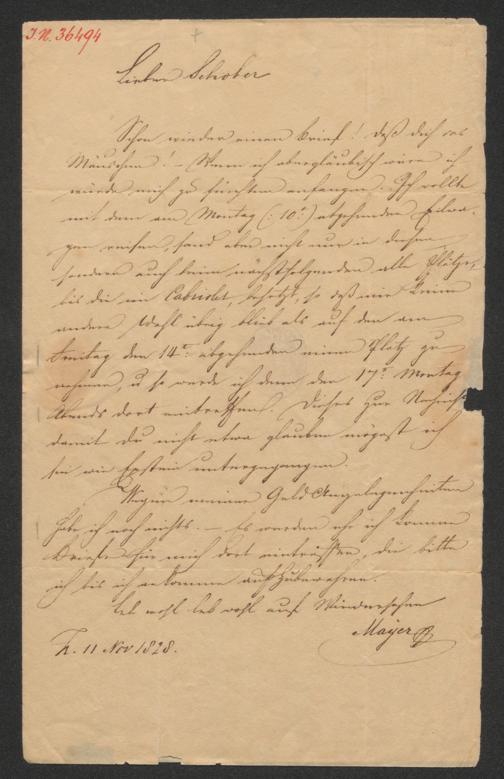 I.N. 36494
Lieber Schober
Schon wieder einen Brief! daß dich das
Mäuschen! – Wenn ich abergläubisch wäre ich
würde mich zu fürchten anfangen. Ich wollte
mit dem am Montag (: 10t:) abgehenden Eilwa-
gen reisen, fand aber nicht nur in diesem
sondern auch beim nächstfolgenden alle Plätze,
bis die im Cabriolet, besetzt, so daß mir keine
andere Wahl übrig blieb als auf den am
Freitag den 14t. abgehenden einen Platz zu
nehmen, u so werde ich denn den 17t. Montag
Abends dort eintreffen. Dieses zur Nachricht
damit du nicht etwa glauben mögest ich
sei wie untergegangen.
Wegen meiner Geld Angelegenheiten
habe ich noch nichts. – Es werden ehe ich komme
Briefe für mich dort eintreffen, die bitte
ich bis ich ankomme aufzubewahren.
Leb wohl leb wohl auf Wiedersehen
Mayer
T. 11 Nov 1828.